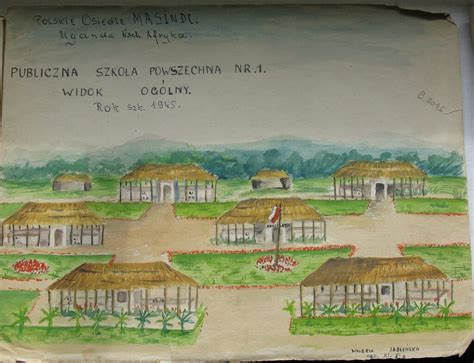 POLSKIE OSIEDLE MASINDI.
Uganda Wsch. Afryka.
PUBLICZNA SZKOŁA POWSZECHNA NR.1.
WIDOK OGÓLNY.
Rok szk. 1945.
JABŁOŃSKA